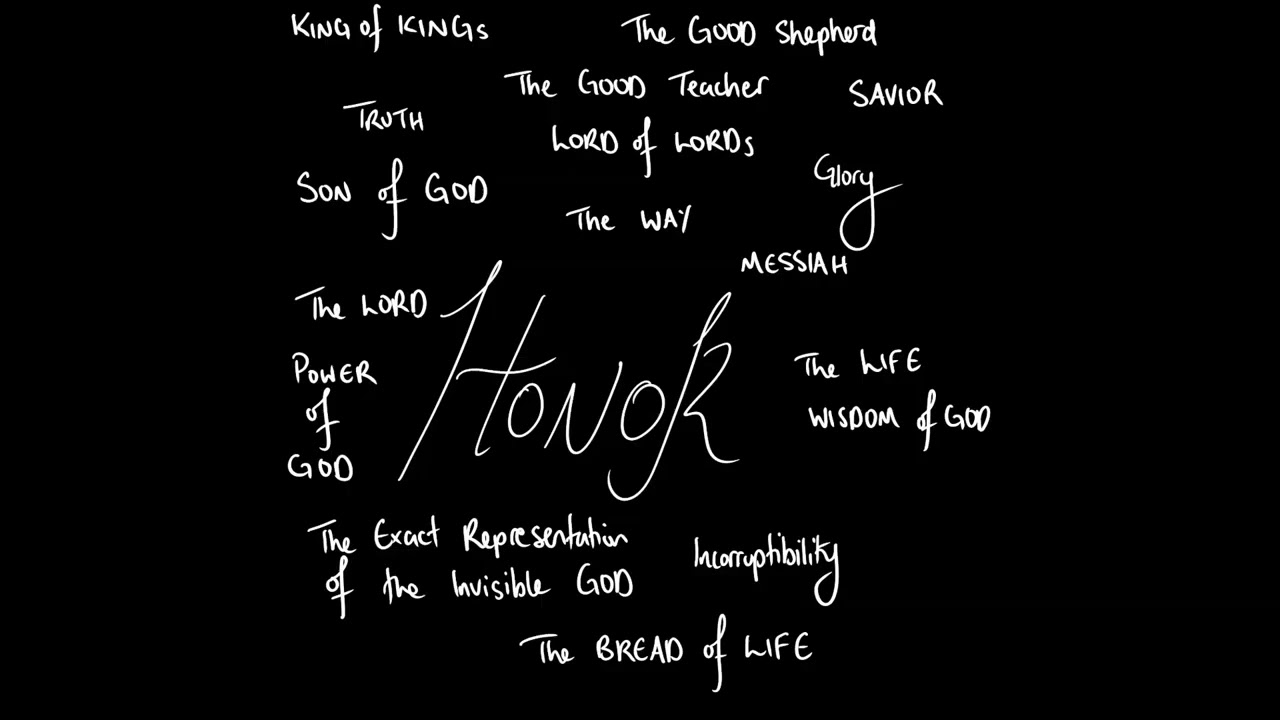 KING of KINGS
The GOOD Shepherd
The GOOD Teacher
SAVIOR
TRUTH
LORD of LORDS
Glory
SON of GOD
The WAY
MESSIAH
The LORD
HONOR
POWER
of
GOD
The LIFE
WISDOM of GOD
The Exact Representation
of the Invisible GOD
Incorruptibility
The BREAD of LIFE